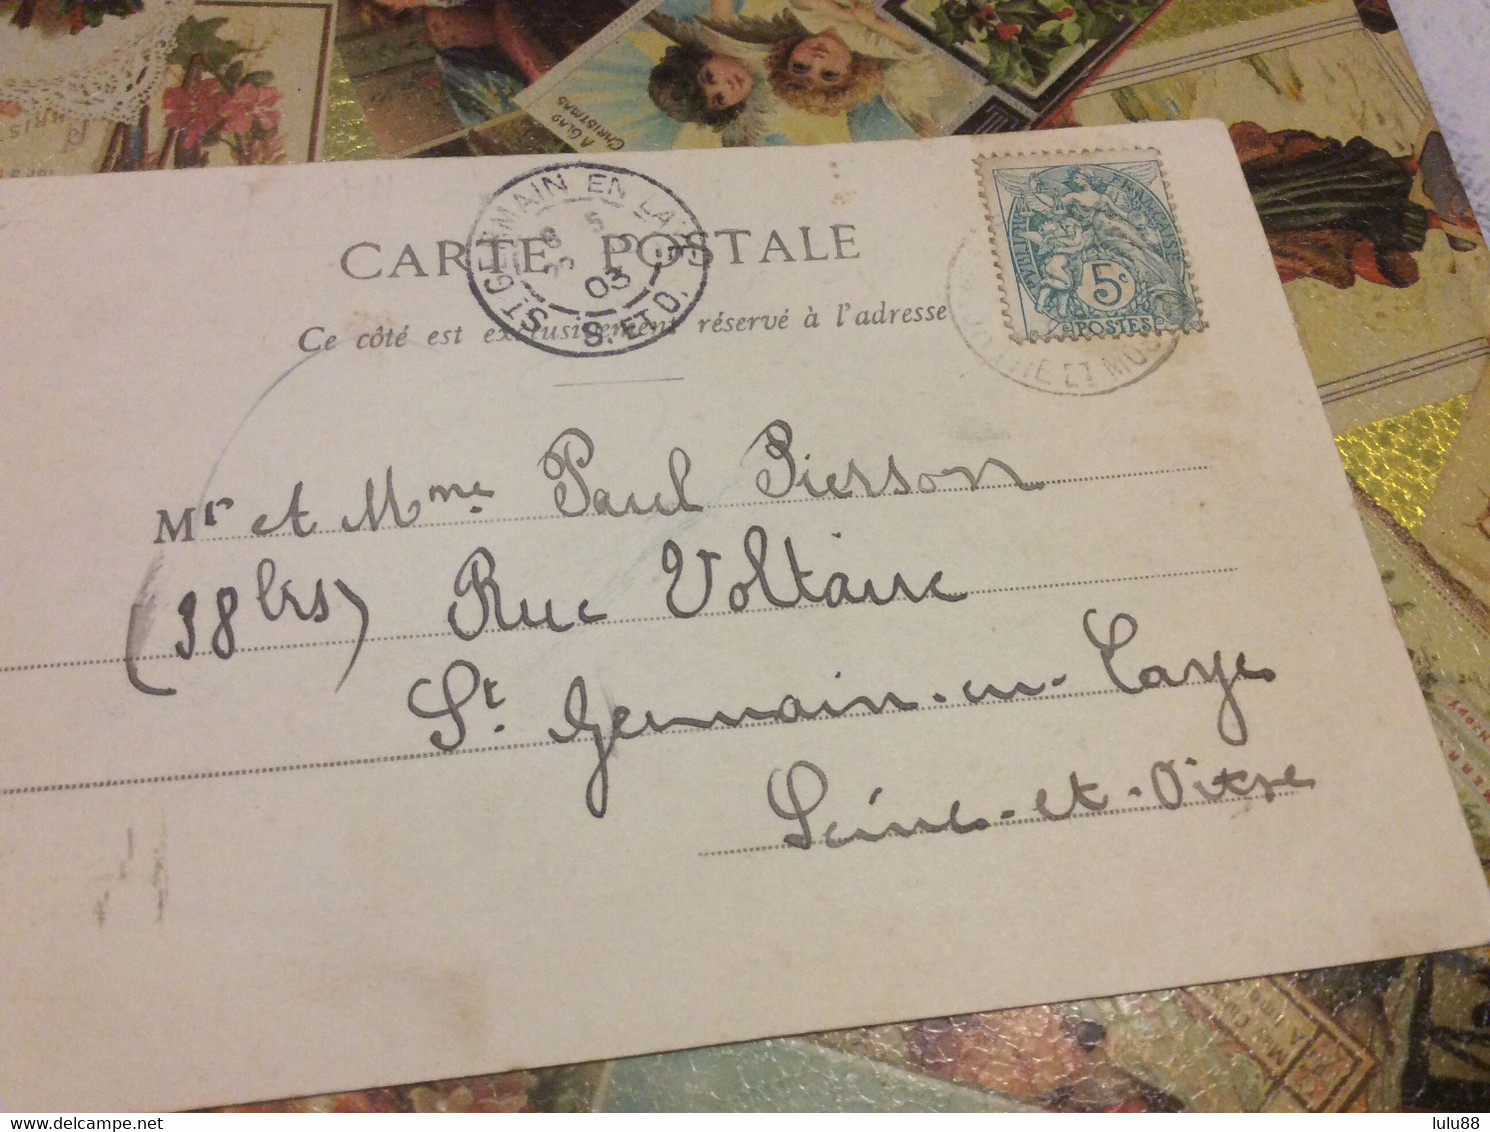 A GLAD
CHRISTMAS
ST GERMAIN EN LAYE
5
03
S. ET O.
CARTE POSTALE
Ce côté est exclusivement réservé à l'adresse
RÉPUBLIQUE FRANÇAISE
5c
POSTES
ET MOS
Mr et Mme Paul Pierson
(38 bis) Rue Voltaire
St. Germain-en-Laye
Seine-et-Oise
lulu88